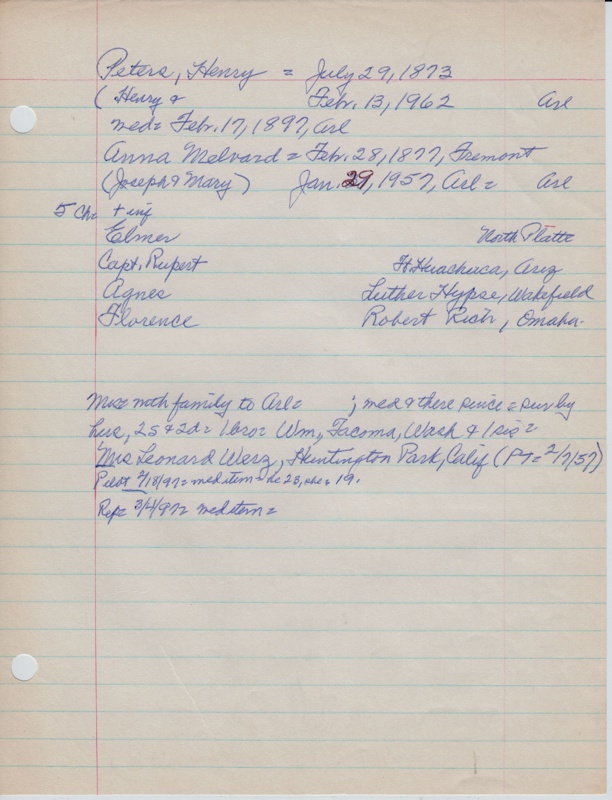 Peters, Henry = July 29, 1873
( Henry & Feb. 13, 1962 Arl
med= Feb. 17, 1897, Arl
Anna Melvard = Feb. 28, 1877, Fremont
(Joseph & Mary) Jan. 29, 1957, Arl = Arl
5 Ch= + inf
Elmer North Platte
Capt. Rupert Ft. Huachuca, Ariz
Agnes Luther Hypse, Wakefield
Florence Robert Rich, Omaha.
with family to Arl= ; med & there since = sur by
hus, 2s & 2d = 1 bro= Wm, Tacoma, Wash & 1 sis =
Mrs Leonard Werz, Huntington Park, Calif (PT= 2/7/57)
Pilot 2/18/97= med item = he 23, she = 19.
Rep= 3/4/97= med item =